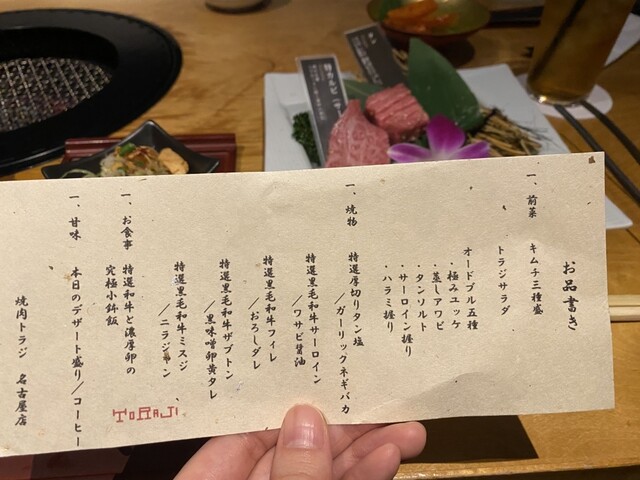 お品書き
一、前菜 キムチ三種盛
トラジサラダ
オードブル五種
・極みユッケ
・蒸しアワビ
・タンソルト
・サーロイン握り
・ハラミ握り
一、焼物 特選厚切りタン塩
／ガーリックネギバカ
特選黒毛和牛サーロイン
／ワサビ醤油
特選黒毛和牛フィレ
／おろしダレ
特選黒毛和牛ザブトン
／黒味噌卵黄タレ
特選黒毛和牛ミスジ
／ニラジャン
一、お食事 特選和牛と濃厚卵の
究極小鉢飯
一、甘味 本日のデザート盛り／コーヒー
焼肉トラジ 名古屋店
TORAJI
特カルビ